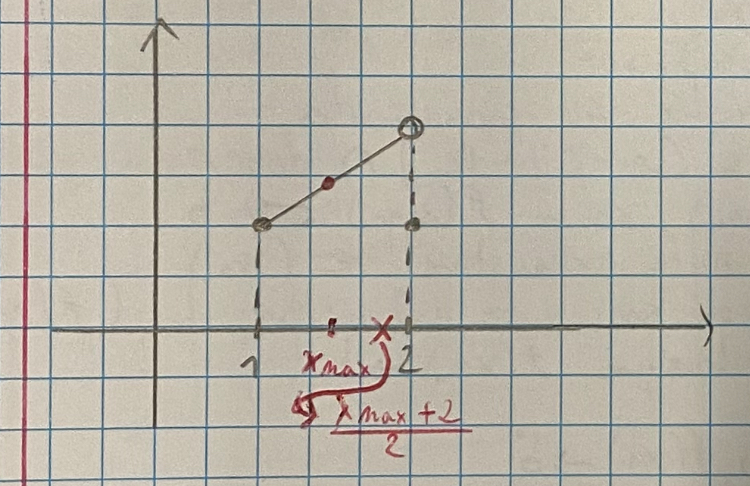 1 x max 2
x max + 2
2